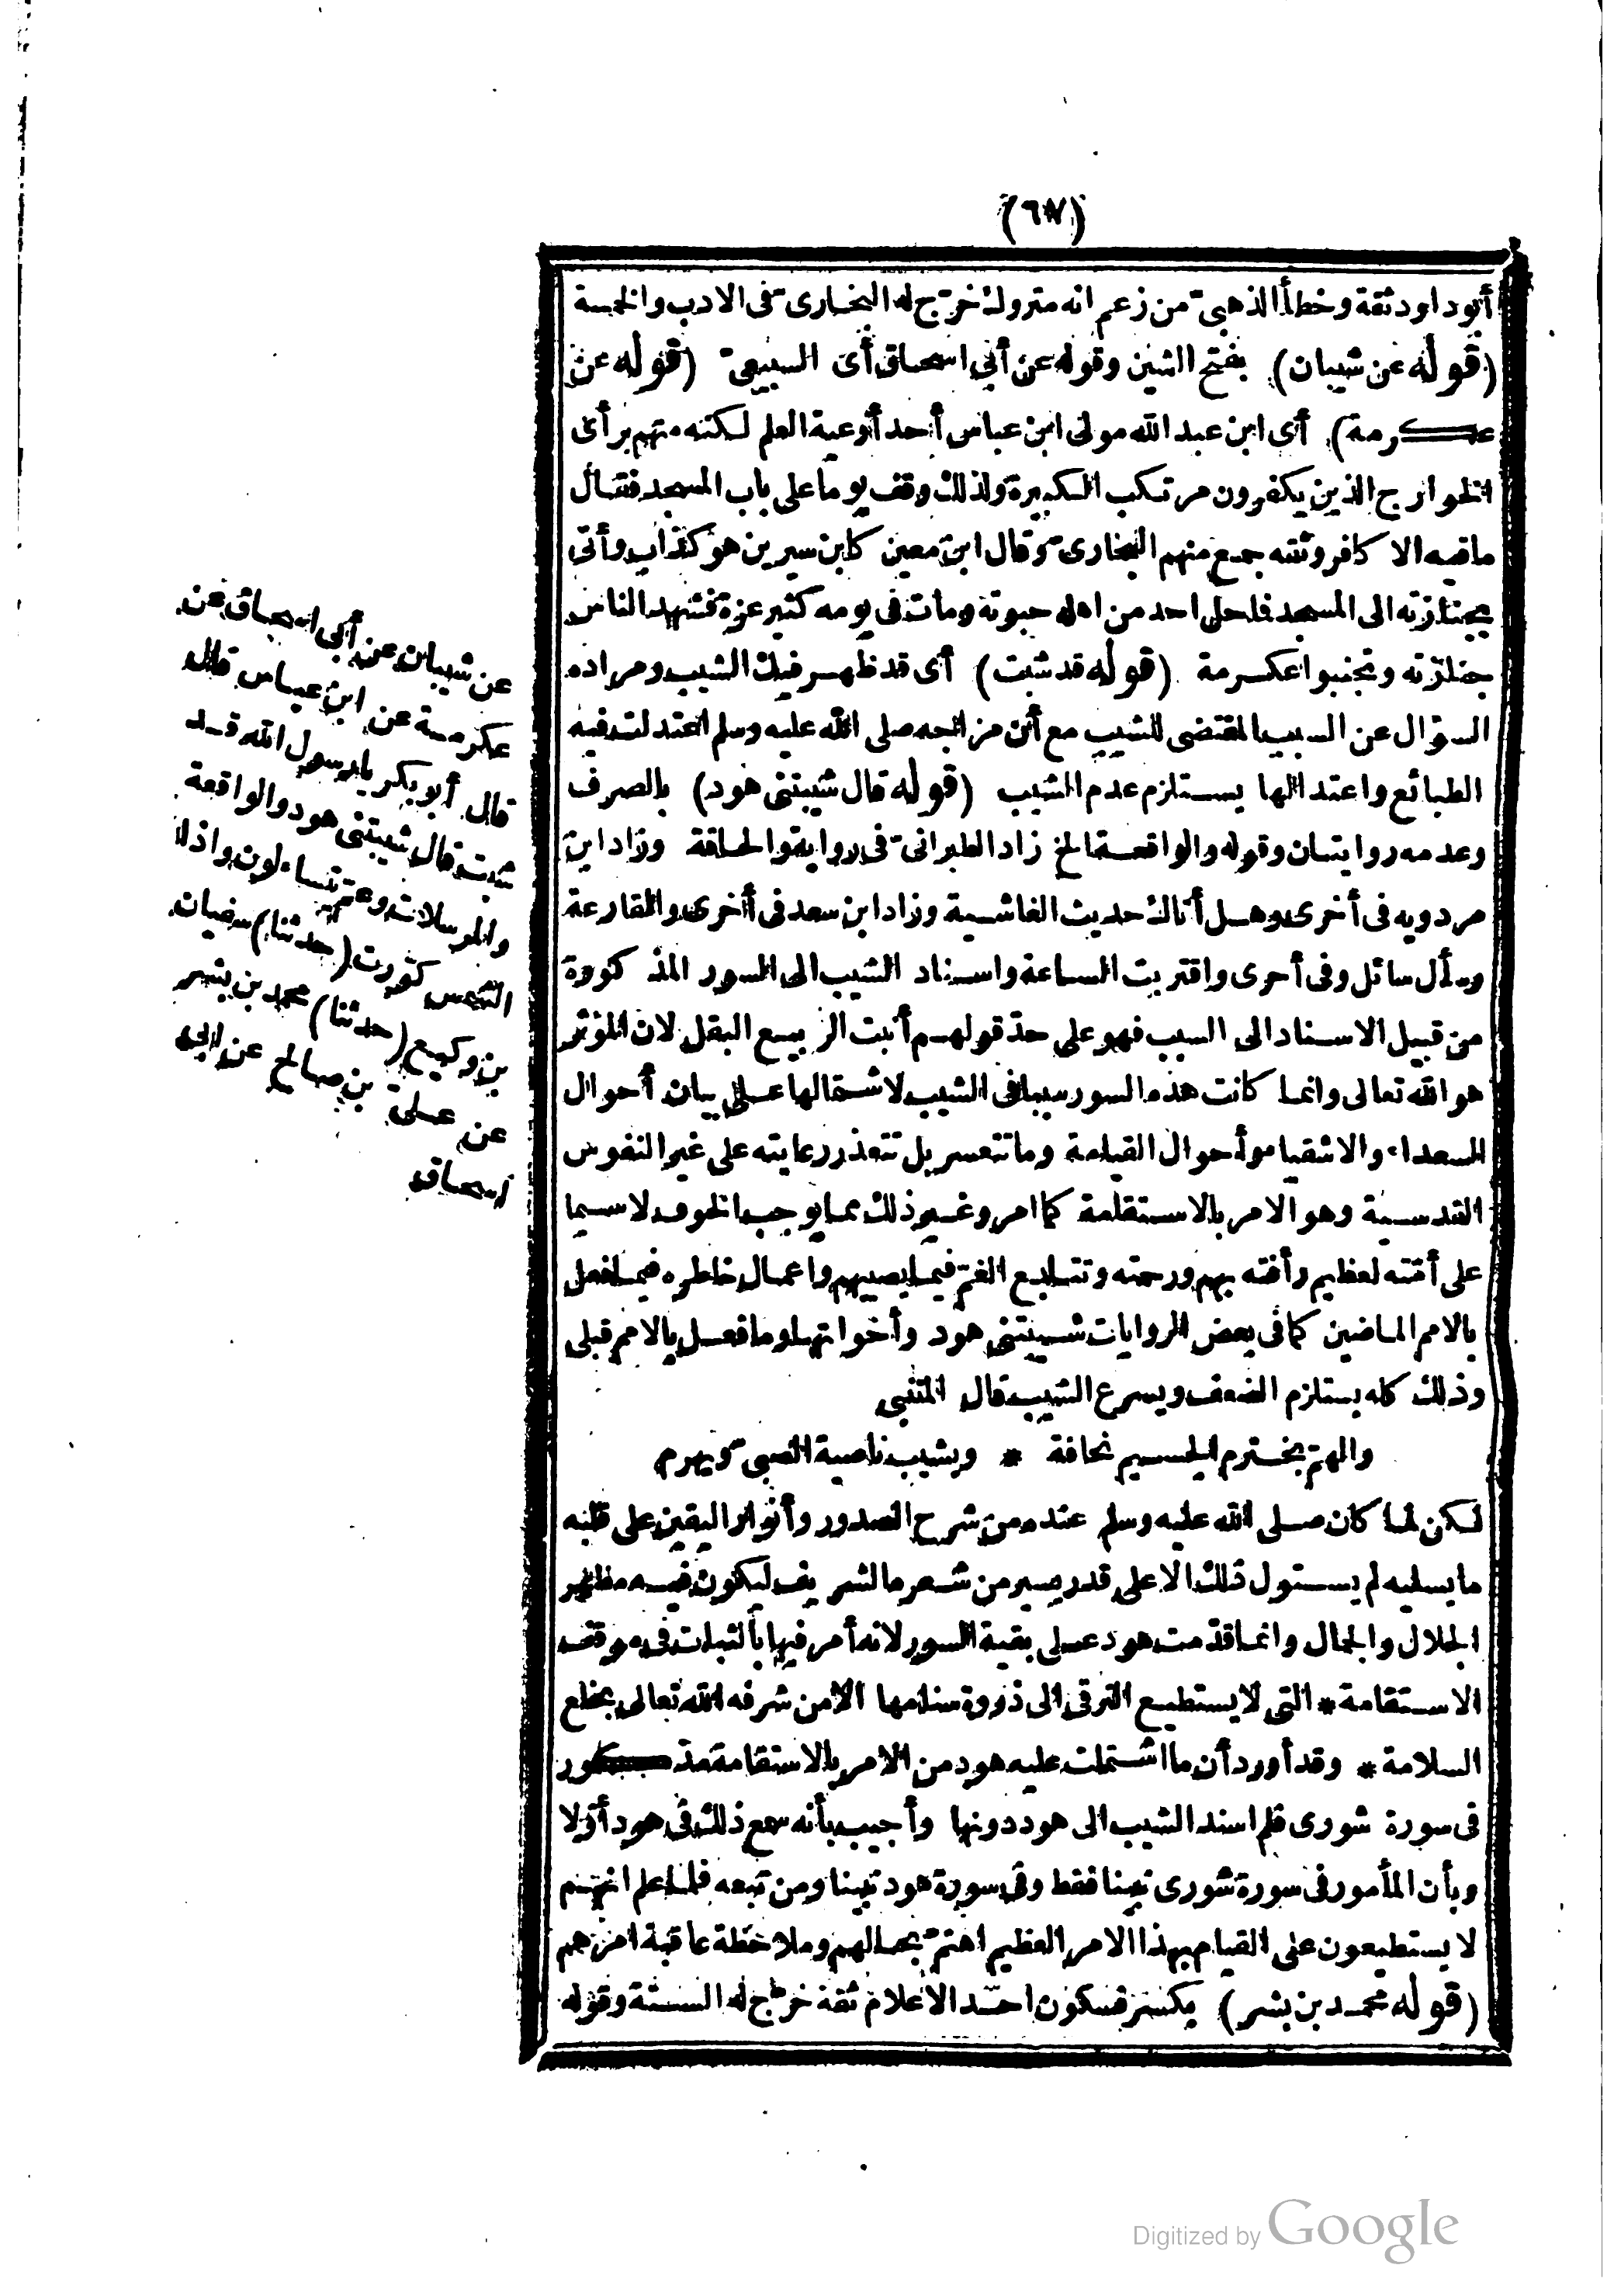 (٦٧)
أبو داود ثقة وخطأ الذهبىّ من زعم انه متروك خرّج له البخارىّ فى الادب والخمسة
(قوله عن شيبان) بفتح الشين وقوله عن أبى اسحاق أى السبيعىّ (قوله عن
عكرمة) أى ابن عبد الله مولى ابن عباس أحد أوعية العلم لكنه متهم برأى
الخوارج الذين يكفرون مرتكب الكبيرة ولذلك وقف يوما على باب المسجد فقال
ما فيه الا كافر وثقه جمع منهم البخارىّ وقال ابن معين كابن سيرين هو كذاب وأتى
بجنازته الى المسجد فما حل احد من اهله حبوته ومات فى يومه كثير عزة فشهد الناس
جنازته وتجنبوا عكرمة (قوله قد شبت) أى قد ظهر فيك الشيب ومراده
السؤال عن السبب المقتضى للشيب مع أن مزاجه صلى الله عليه وسلم اعتدلت فيه
الطبائع واعتدالها يستلزم عدم الشيب (قوله قال شيبتنى هود) بالصرف
وعدمه روايتان وقوله والواقعة الخ زاد الطبرانىّ فى رواية والحاقة وزاد ابن
مردويه فى أخرى وهل أتاك حديث الغاشية وزاد ابن سعد فى أخرى والقارعة
وسأل سائل وفى أخرى واقتربت الساعة واسناد الشيب الى السور المذكورة
من قبيل الاسناد الى السبب فهو على حدّ قولهم أنبت الربيع البقل لان المؤثر
هو الله تعالى وانما كانت هذه السور سببا فى الشيب لاشتمالها على بيان أحوال
السعداء والاشقياء وأحوال القيامة وما تتعسر بل تتعذر رعايته على غير النفوس
القدسية وهو الامر بالاستقامة كما مر وغير ذلك مما يوجب الخوف لاسيما
على أمّته لعظيم رأفته بهم ورحمته وتتابع الغمّ فيما يصيبهم واعمال خاطره فيما فعل
بالامم الماضين كما فى بعض الروايات شيبتنى هود وأخواتها وما فعل بالامم قبلى
وذلك كله يستلزم الضعف ويسرع الشيب قال المتنبى
والهمّ يخترم الجسيم نحافة * ويشيب ناصية الصبىّ ويهرم
لكن لما كان صلى الله عليه وسلم عنده من شرح الصدور وأنوار اليقين على قلبه
ما يسليه لم يستول ذلك الا على قدر يسير من شعره الشريف ليكون فيه مظهر
الجلال والجمال وانما قدّمت هود على بقية السور لانه أمر فيها بالثبات فى موقف
الاستقامة * التى لا يستطيع الترقى الى ذروة سنامها الا من شرفه الله تعالى بخلع
السلامة * وقد أورد أن ما اشتملت عليه هود من الامر بالاستقامة مذكور
فى سورة شورى فلم اسند الشيب الى هود دونها وأجيب بأنه سمع ذلك فى هود أوّلا
وبأن المأمور فى سورة شورى نبينا فقط وفى سورة هود نبينا ومن تبعه فلما علم انهم
لا يستطيعون على القيام بهذا الامر العظيم اهتمّ بحالهم وملاحظة عاقبة امرهم
(قوله محمد بن بشر) بكسر فسكون احد الاعلام ثقة خرّج له الستة وقوله
عن شيبان عن أبى اسحاق عن
عكرمة عن ابن عباس قال
قال أبو بكر يا رسول الله قد
شبت قال شيبتنى هود والواقعة
والمرسلات وعمّ يتساءلون واذا
الشمس كوّرت (حدثنا) سفيان
بن وكيع (حدثنا) محمد بن بشر
عن علىّ بن صالح عن ابى
اسحاق
Digitized by Google